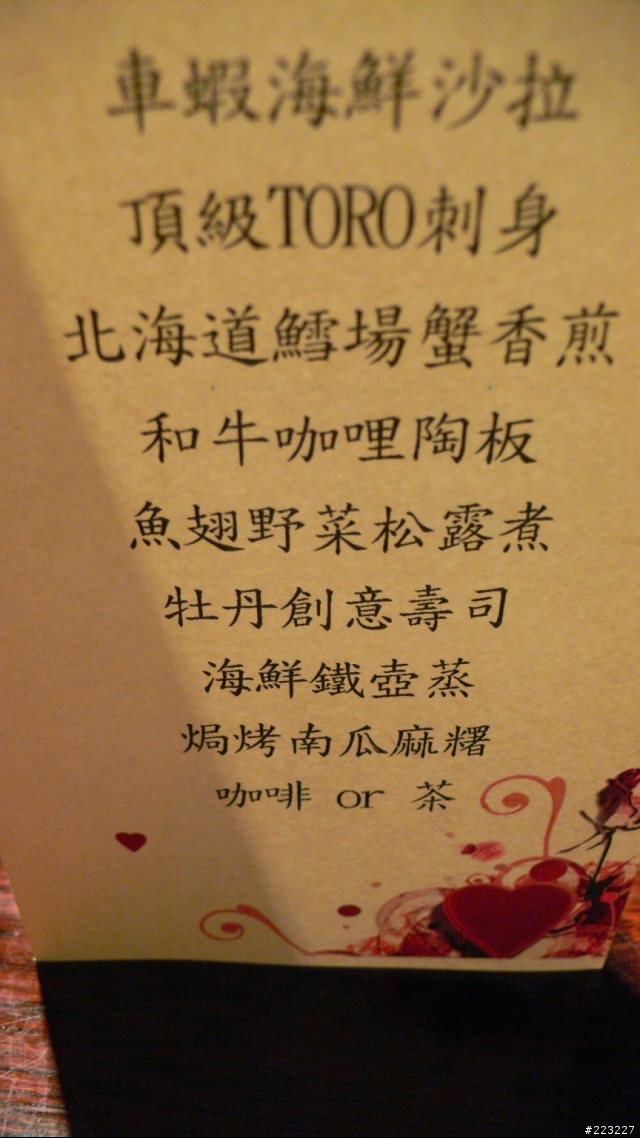 車蝦海鮮沙拉
頂級TORO刺身
北海道鱈場蟹香煎
和牛咖哩陶板
魚翅野菜松露煮
牡丹創意壽司
海鮮鐵壺蒸
焗烤南瓜麻糬
咖啡 or 茶
#223227